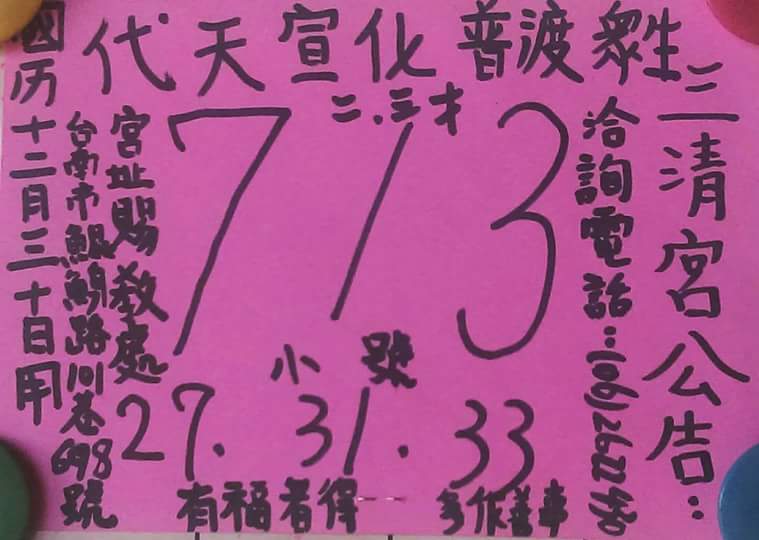 代天宣化 普渡眾生
三清宮公告:
洽詢電話:(06)2622
二、三才
713
小號
27. 31. 33
有福者得
多作善事
宮址賜教處
台南市鯤鯓路101巷698號
國历十二月三十日用